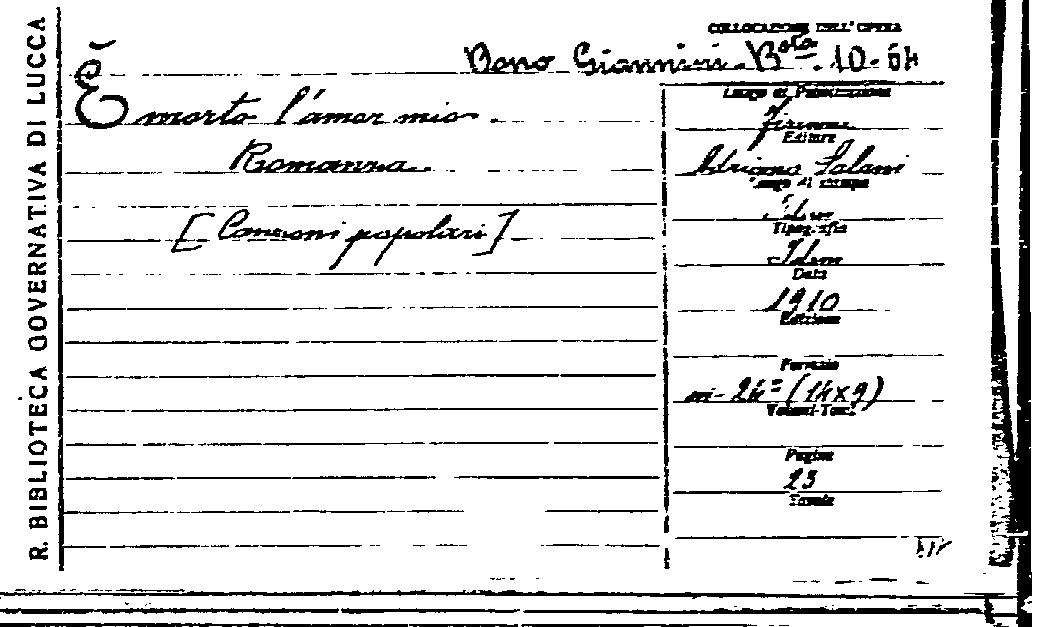 R. BIBLIOTECA GOVERNATIVA DI LUCCA
COLLOCAZIONE DELL'OPERA
Dono Giannini. B.sta. 10-64
È morto l'amor mio.
Romanza.
[Canzoni popolari]
Luogo di Pubblicazione
Firenze
Editore
Adriano Salani
Luogo di stampa
Idem
Tipografia
Idem
Data
1910
Edizione
Formato
in-24º (14x9)
Volumi-Tomi
Pagine
23
Tavole